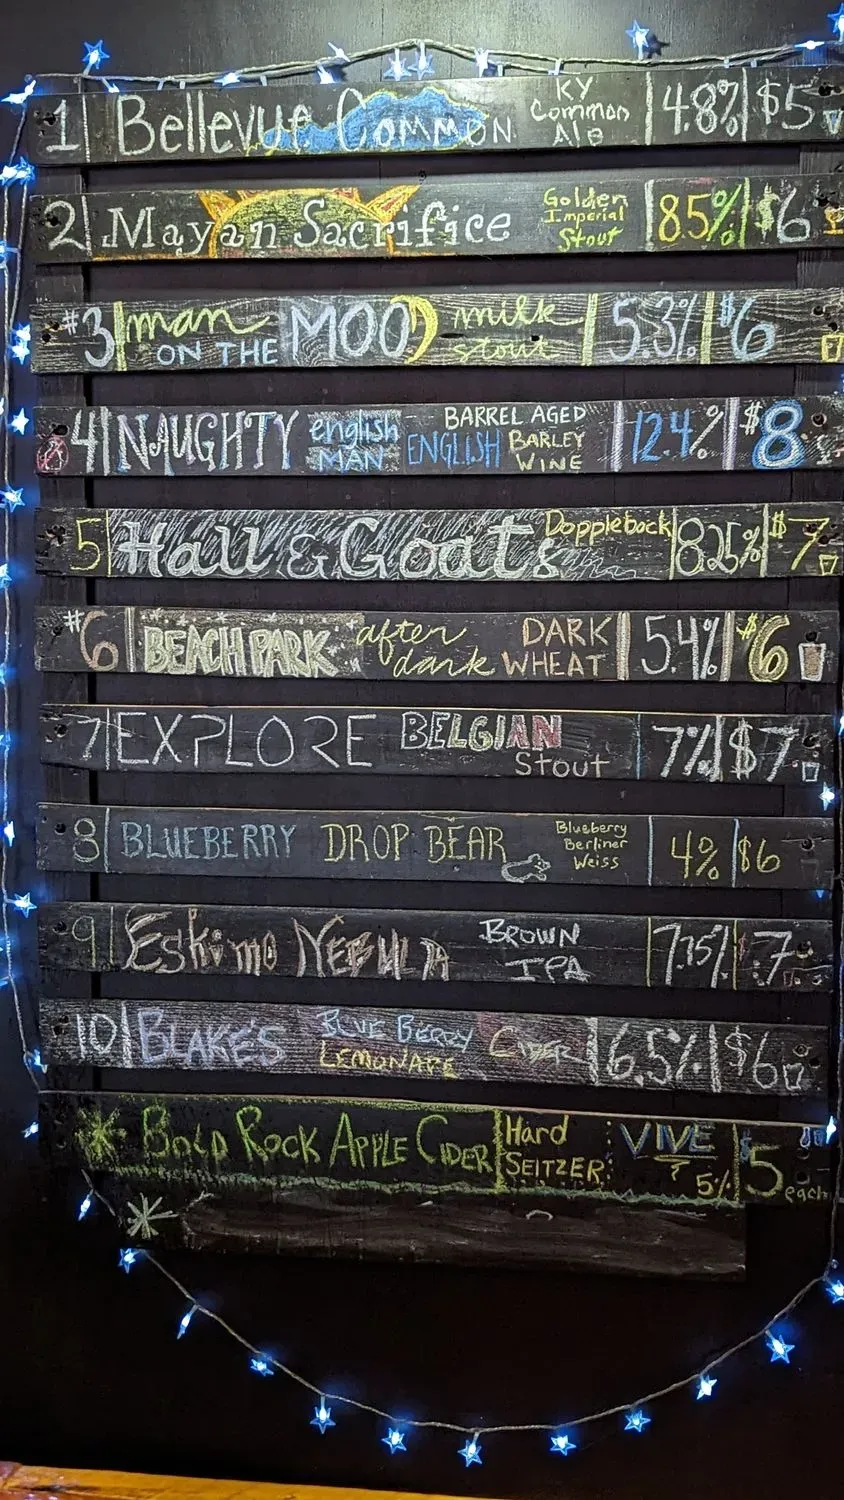 1 Bellevue Common KY Common Ale 4.8% $5
2 Mayan Sacrifice Golden Imperial Stout 8.5% $6
#3 man ON THE MOO milk stout 5.3% $6
4 NAUGHTY english MAN BARREL AGED ENGLISH BARLEY WINE 12.4% $8
5 Hall & Goats Doppleback 8.25% $7
#6 BEACH PARK after dark DARK WHEAT 5.4% $6
7 EXPLORE BELGIAN Stout 7% $7
8 BLUEBERRY DROP BEAR Blueberry Berliner Weiss 4% $6
9 Eskimo NEBULA BROWN IPA 7.75% $7
10 BLAKE'S BLUE BERRY LEMONADE CIDER 6.5% $6
* BOLD ROCK APPLE CIDER Hard SEITZER: VIVE 5% $5 each
*